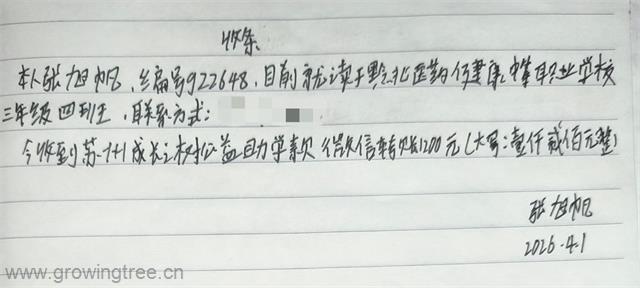 收条
本人张旭帆,编号922648,目前就读于黔北医药健康中等职业学校
三年级四班,联系方式:
今收到苏州成长之树公益助学款 微信转账1200元(大写:壹仟贰佰元整)
张旭帆
2026.4.1
www.growingtree.cn